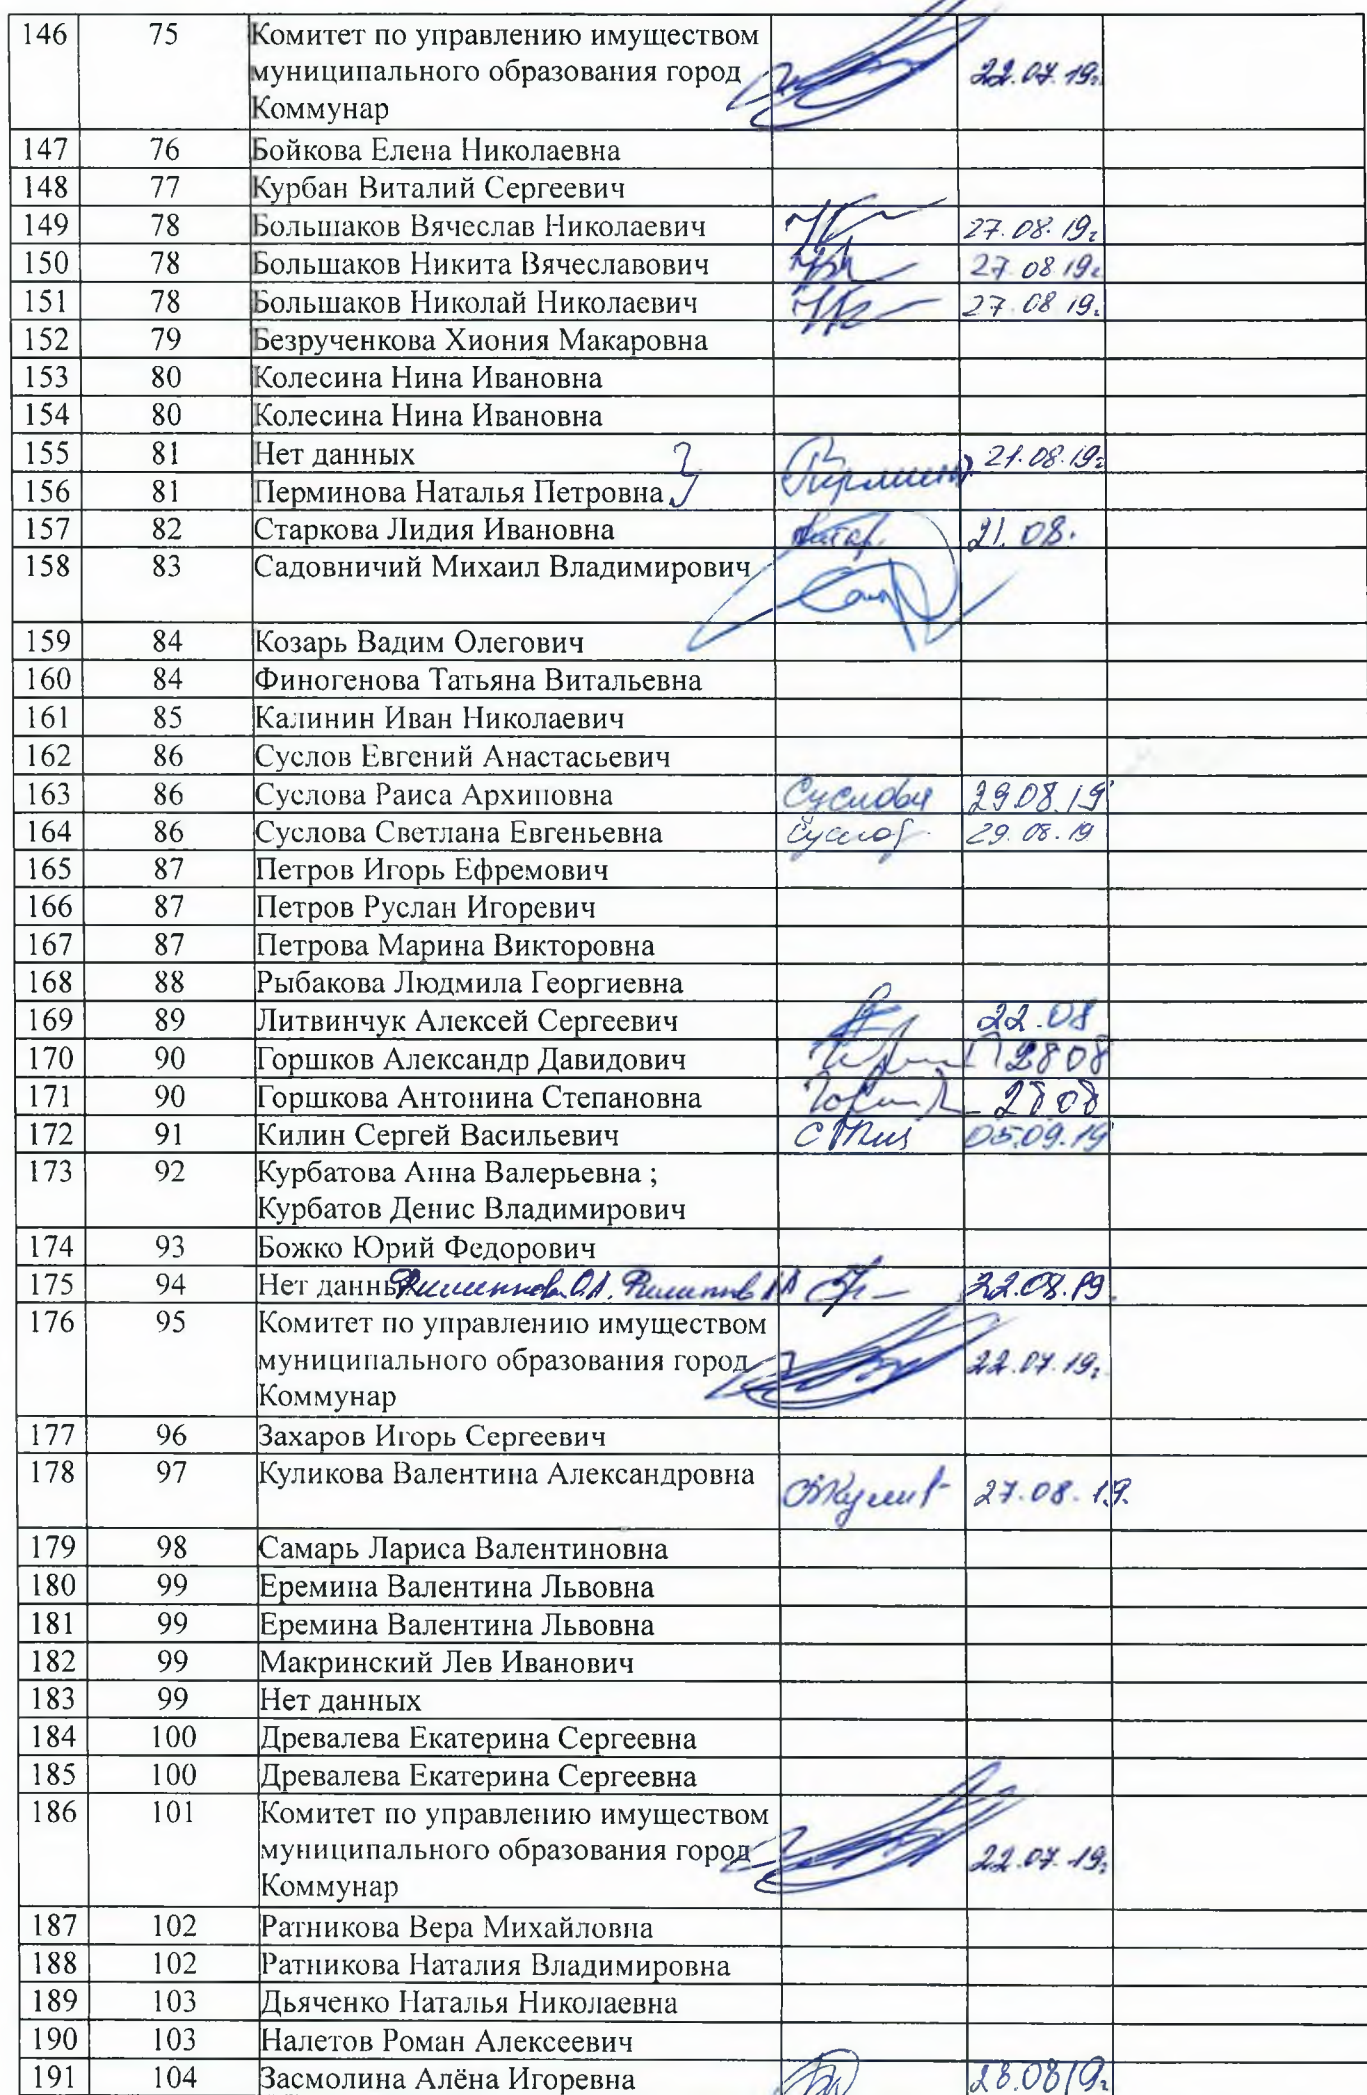 146 75 Комитет по управлению имуществом
муниципального образования город 22.07.19г.
Коммунар
147 76 Бойкова Елена Николаевна
148 77 Курбан Виталий Сергеевич
149 78 Большаков Вячеслав Николаевич 27.08.19г
150 78 Большаков Никита Вячеславович 27.08 19г
151 78 Большаков Николай Николаевич 27.08 19г
152 79 Безрученкова Хиония Макаровна
153 80 Колесина Нина Ивановна
154 80 Колесина Нина Ивановна
155 81 Нет данных 21.08.19г
156 81 Перминова Наталья Петровна
157 82 Старкова Лидия Ивановна 21.08.
158 83 Садовничий Михаил Владимирович
159 84 Козарь Вадим Олегович
160 84 Финогенова Татьяна Витальевна
161 85 Калинин Иван Николаевич
162 86 Суслов Евгений Анастасьевич
163 86 Суслова Раиса Архиповна 29.08.19
164 86 Суслова Светлана Евгеньевна 29.08.19
165 87 Петров Игорь Ефремович
166 87 Петров Руслан Игоревич
167 87 Петрова Марина Викторовна
168 88 Рыбакова Людмила Георгиевна
169 89 Литвинчук Алексей Сергеевич 22.08
170 90 Горшков Александр Давидович 28 08
171 90 Горшкова Антонина Степановна 28 08
172 91 Килин Сергей Васильевич 05.09.19
173 92 Курбатова Анна Валерьевна ;
Курбатов Денис Владимирович
174 93 Божко Юрий Федорович
175 94 Нет данны 22.08.19
176 95 Комитет по управлению имуществом
муниципального образования город 22.07.19г.
Коммунар
177 96 Захаров Игорь Сергеевич
178 97 Куликова Валентина Александровна 27.08.19.
179 98 Самарь Лариса Валентиновна
180 99 Еремина Валентина Львовна
181 99 Еремина Валентина Львовна
182 99 Макринский Лев Иванович
183 99 Нет данных
184 100 Древалева Екатерина Сергеевна
185 100 Древалева Екатерина Сергеевна
186 101 Комитет по управлению имуществом
муниципального образования город 22.07.19г
Коммунар
187 102 Ратникова Вера Михайловна
188 102 Ратникова Наталия Владимировна
189 103 Дьяченко Наталья Николаевна
190 103 Налетов Роман Алексеевич
191 104 Засмолина Алёна Игоревна 28.08 19г